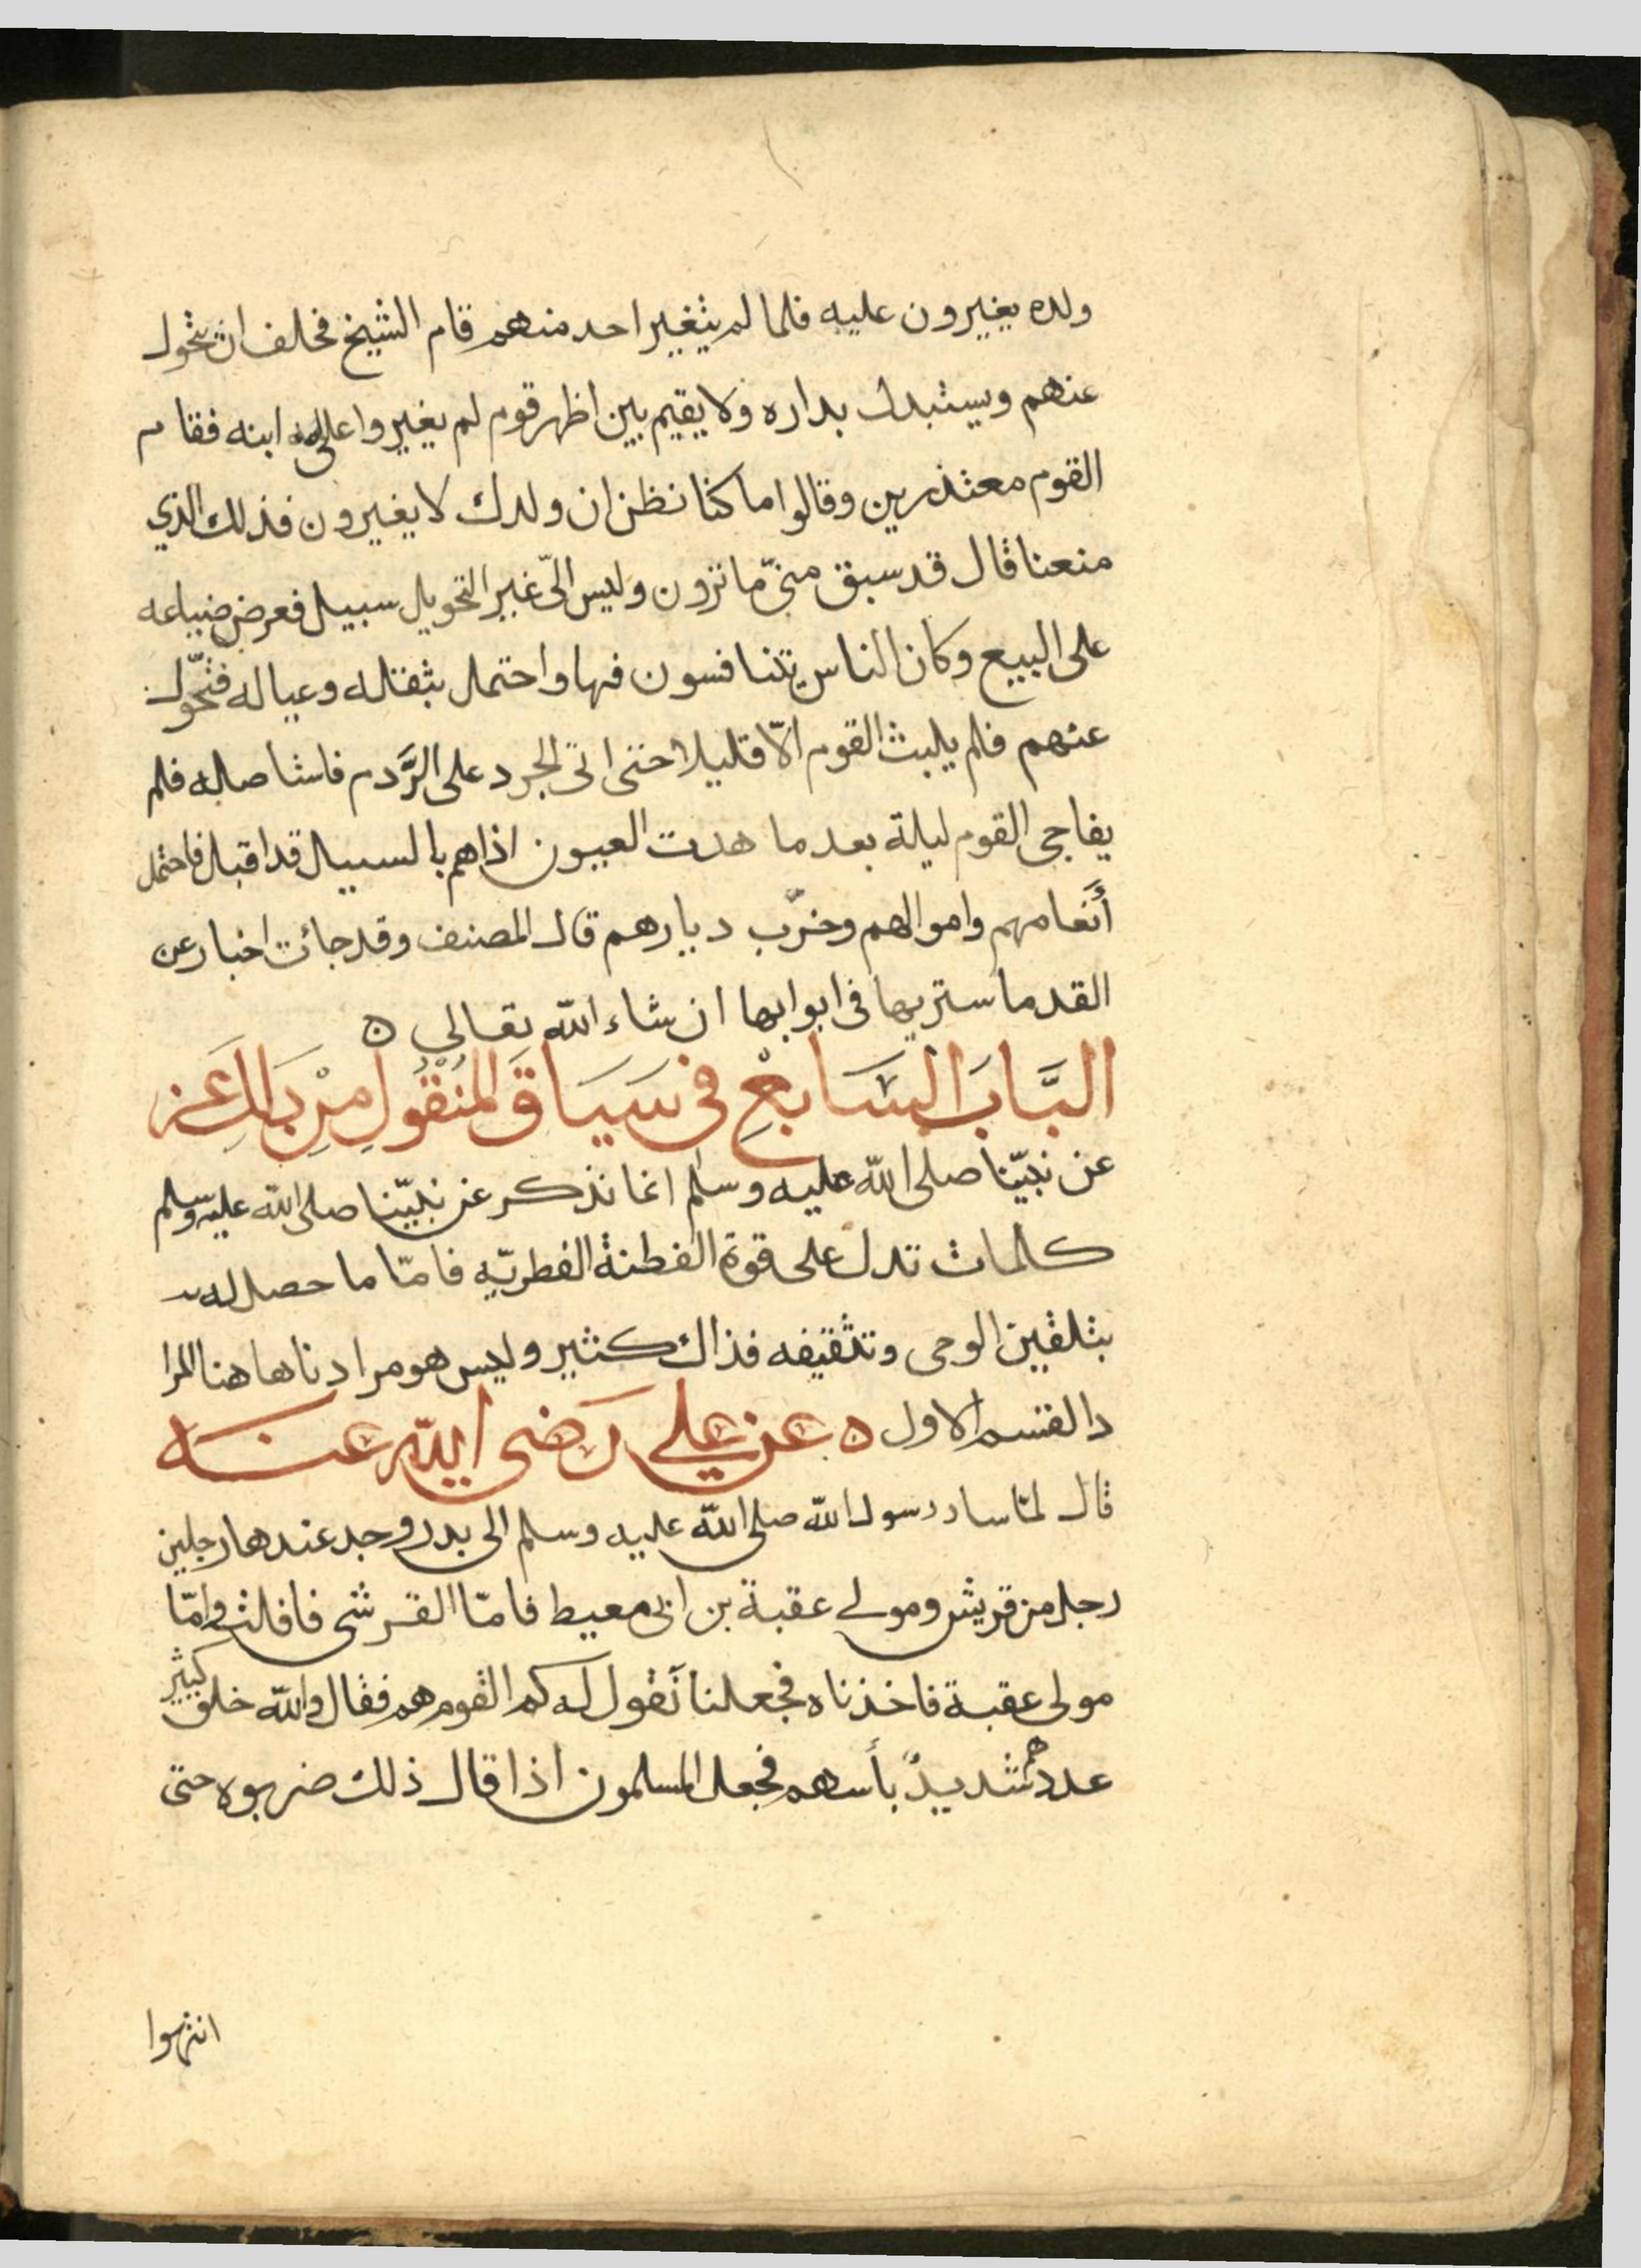 ولده يغيرون عليه فلما لم يتغير احد منهم قام الشيخ فحلف ان يتحول
عنهم ويستبدل بداره ولا يقيم بين اظهر قوم لم يغيروا عليه ابنه فقام
القوم معتذرين وقالوا ما كنا نظن ان ولدك لا يغيرون فذلك الذي
منعنا قال قد سبق منّى ما ترون وليس الىّ غير التحويل سبيل فعرض ضياعه
على البيع وكان الناس يتنافسون فيها واحتمل بثقله وعياله فتحوّل
عنهم فلم يلبث القوم الّا قليلا حتى اتى الجرد على الرَّدم فاستاصله فلم
يفاجى القوم ليلة بعد ما هدت العيون اذاهم بالسيل قد اقبل فاحتمل
أنعامهم واموالهم وخرّب ديارهم قال المصنف وقد جائت اخبار عن
القدما ستريها فى ابوابها ان شاء الله تعالى ه
البَّابَ السَّابعِ فى سَيَاقَ المنْقُولِ مِنْ ذَالِكَ عَن
عن نبيّنا صلى الله عليه وسلم انما نذكر عن نبيّنا صلى الله عليه وسلم
كلمات تدل على قوة الفطنة الفطريّه فامّا ما حصل له
بتلقين الوحى وتثقيفه فذاك كثير وليس هو مرادنا هاهنا المرا
د القسم الاول ه عن علي رضى الله عنه
قال لمّا سار رسول الله صلى الله عليه وسلم الى بدر وجد عندها رجلين
رجل من قريش ومولى عقبة بن ابى معيط فامّا القرشى فافلت وامّا
مولى عقبة فاخذناه فجعلنا نَقول له كم القوم هم فقال والله خلق كثير
عددهم شديدٌ بأسهم فجعل المسلمون اذا قال ذلك ضربوه حتى
انتهوا